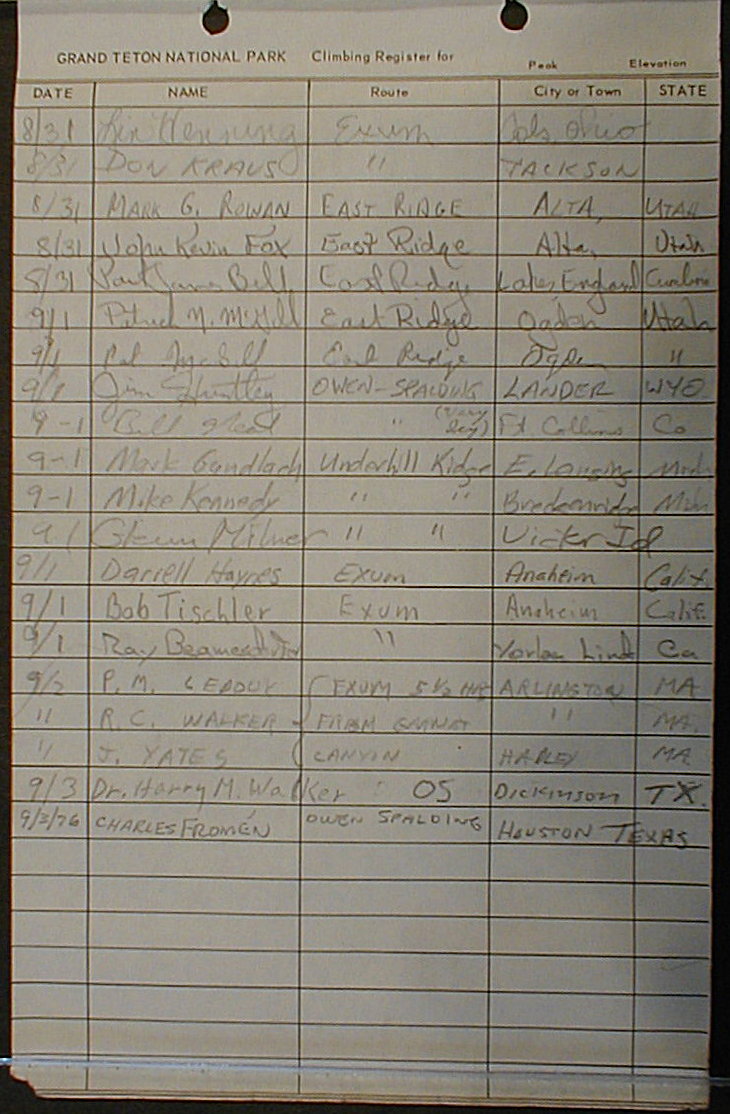 GRAND TETON NATIONAL PARK Climbing Register for Peak Elevation
DATE NAME Route City or Town STATE
8/31 Henning Exum Cols, Ohio
8/31 DON KRAUS " JACKSON
8/31 MARK G. ROWAN EAST RIDGE ALTA, UTAH
8/31 John Kevin Fox East Ridge Alta, Utah
8/31 Paul James Bell East Ridge Lakes, England Cumbria
9/1 Patrick M. McGill East Ridge Ogden Utah
9/1 Pat McGill East Ridge Ogden "
9/1 Jim Huntley OWEN-SPALDING LANDER WYO
9-1 Bill " (Very Icy) Ft Collins Co
9-1 Mark Gundlach Underhill Ridge E. Lansing Mich
9-1 Mike Kennedy " " Breckenridge Mich
9-1 Glenn Milner " " Victor Id
9/1 Darrell Haynes Exum Anaheim Calif.
9/1 Bob Tischler Exum Anaheim Calif.
9/1 Ray " Yorba Linda Ca
9/2 P. M. LEDOUX EXUM 5 1/2 HRS ARLINGTON MA
" R. C. WALKER FROM GARNET " MA.
" J. YATES CANYON HADLEY MA
9/3 Dr. Harry M. Walker OS Dickinson TX.
9/3/76 CHARLES FROMÉN OWEN SPALDING HOUSTON TEXAS